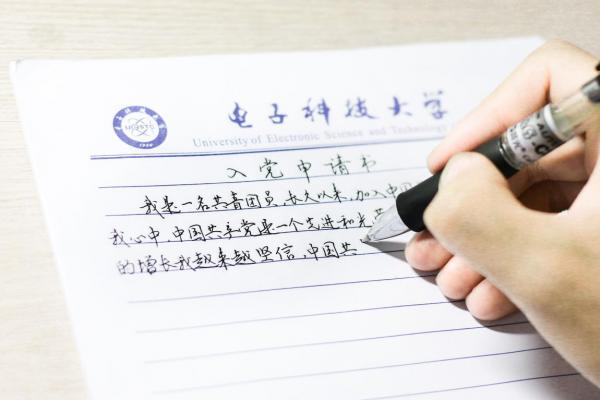 电子科技大学
University of Electronic Science and Technology
入党申请书
我是一名共青团员,长久以来,加入中国
我心中,中国共产党是一个先进和光荣
的增长我越来越坚信,中国共